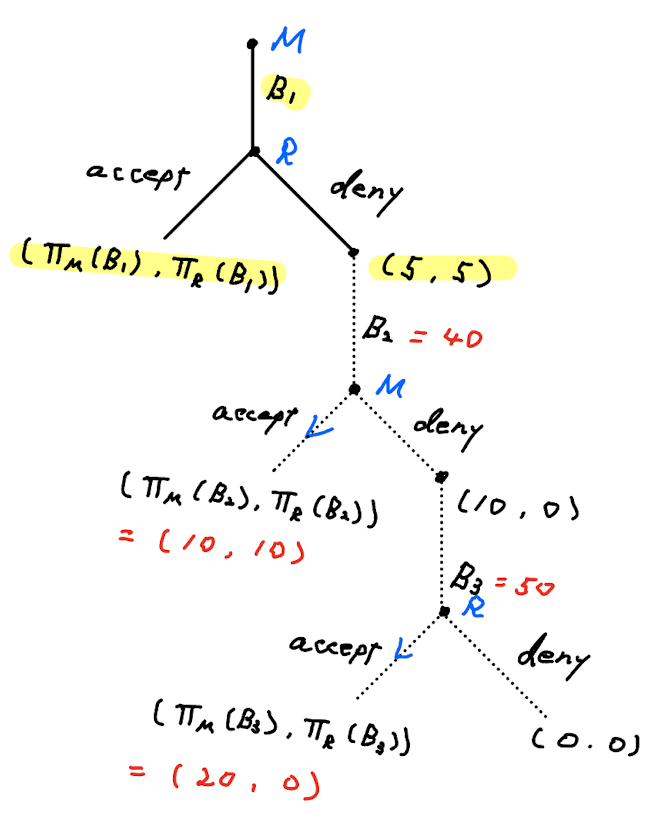 M
B₁
R
accept
deny
(π_M(B₁), π_R(B₁))
(5, 5)
B₂ = 40
M
accept
deny
(π_M(B₂), π_R(B₂))
= (10, 10)
(10, 0)
B₃ = 50
R
accept
deny
(π_M(B₃), π_R(B₃))
= (20, 0)
(0.0)